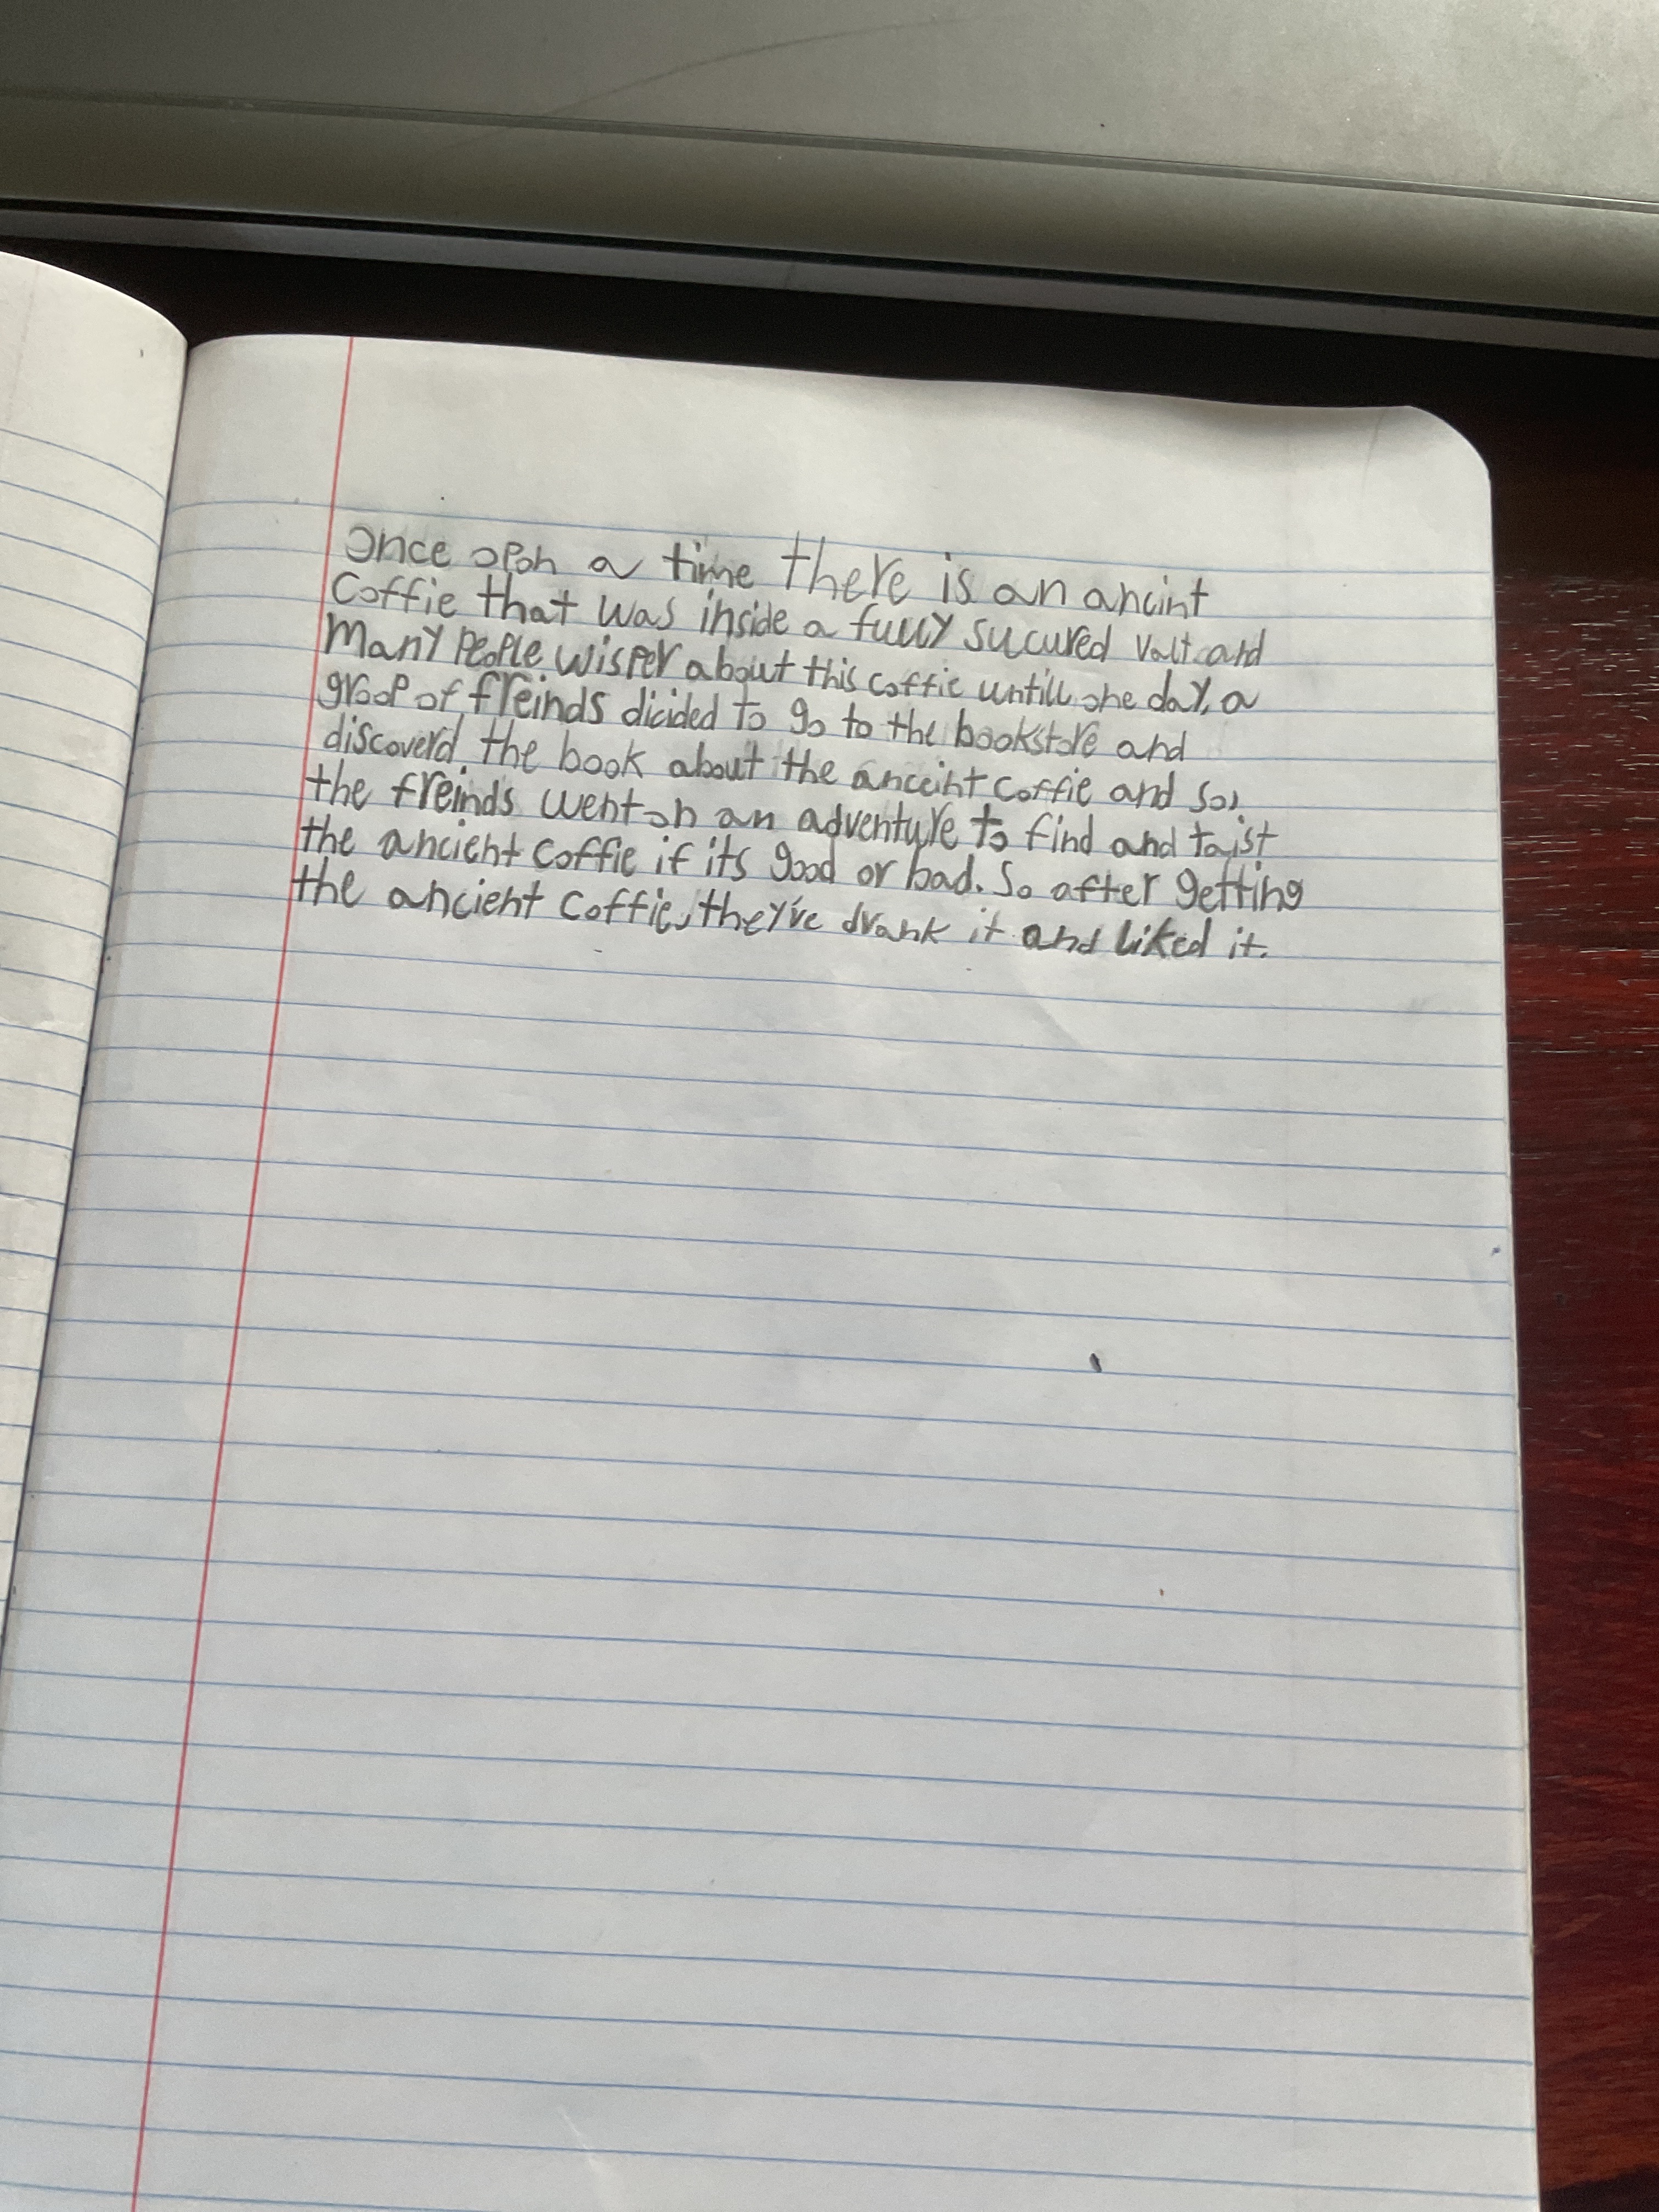 Once opon a time there is an ancint
Coffie that was inside a fully sucured valt and
Many People wisper about this coffie untill one day, a
groop of freinds dicided to go to the bookstore and
discoverd the book about the anceint coffie and so,
the freinds went on an adventure to find and taist
the ancient coffie if its good or bad. So after getting
the ancient coffie, they've drank it and liked it.